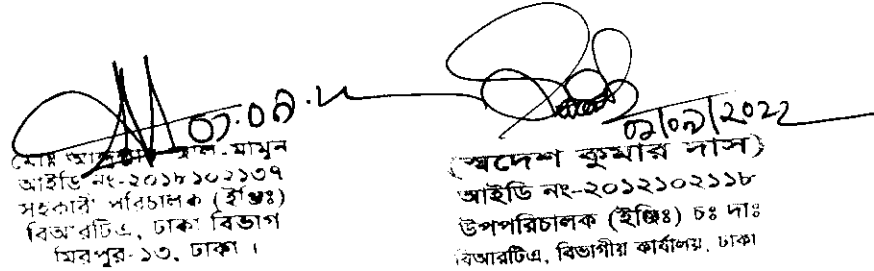 মোঃ আল-মামুন
আইডি নং-২০১৮১০২১৩৭
সহকারী পরিচালক (ইঞ্জিঃ)
বিআরটিএ, ঢাকা বিভাগ
মিরপুর-১৩, ঢাকা ।
০১/০৯/২০২২
(স্বদেশ কুমার দাস)
আইডি নং-২০১২১০২১১৮
উপপরিচালক (ইঞ্জিঃ) চঃ দাঃ
বিআরটিএ, বিভাগীয় কার্যালয়, ঢাকা